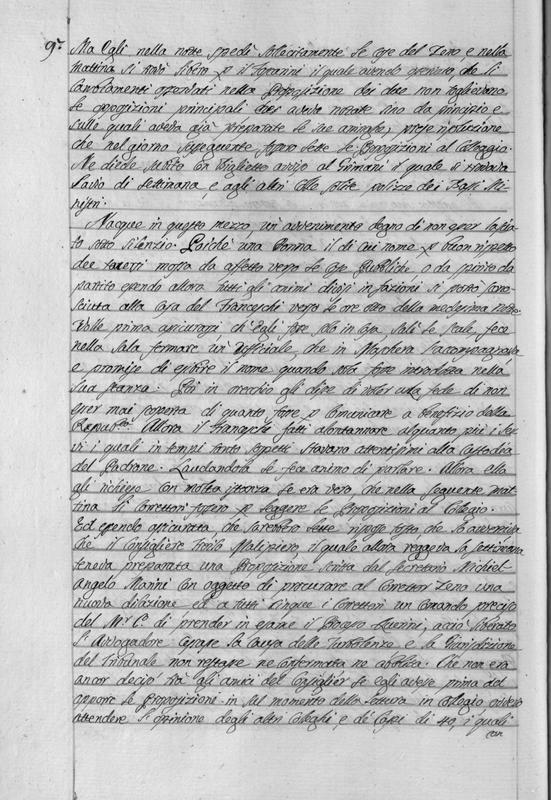 9.a Ma Egli nella notte spedì sollecitamente le cose del Zeno e nella
mattina si trovò libero p il Foscarini il quale avendo
cambiamenti nella Proposizione dei due non toglievano
le opposizioni principali aveva notate sino da principio e
sulle quali aveva già preparate le sue prese risoluzione
che nel giorno susseguente fosse lette le Proposizioni al Collegio.
Ne diede subito con Viglietto avviso al Grimani il quale si trovava
Savio di Settimana, e agli altri colle solite polizze dei
Nacque in questo mezzo un avvenimento degno di non esser lasciato
sotto silenzio. Poichè una Donna il di cui nome p buon rispetto
dee tacersi mossa da affetto verso le cose Pubbliche o da
partito essendo allora tutti gli animi divisi in fazioni si portò
sciuta alla Casa del Franceschi verso le ore otto della medesima notte.
Volle prima assicurarsi ch'Egli fosse solo in casa, salì le scale, fece
nella Sala fermare un Ufficiale, che in Maschera l'accompagnava
e promise di esporre il nome quando sola fosse introdotta nella
sua stanza. Poi in orecchio gli disse di voler una fede di non
esser mai scoperta di quanto fosse p comunicare a benefizio della
Repub.ca Allora il Franceschi fatti allontanare alquanto più i Ser-
vi i quali in tempi tanto sospetti stavano attentissimi alla Custodia
del Padrone. Laudandola le fece animo di parlare. Allora ella
gli richiese con molta istanza se era vero, che nella seguente mat-
tina li Correttori fossero p leggere le Proposizioni al Collegio.
Ed essendo assicurata che sarebbero lette rispose tosto che lo avvertiva
che il Consigliere Malipiero, il quale allora reggeva la settimana
teneva preparata una Proposizione scritta dal Secretario Michiel
Angelo Marini con oggetto di procurare al Correttor Zeno una
nuova dilazione ed a tutti cinque i Correttori un comando preciso
del M.r C.o di prender in esame il Processo Querini, acciò liberato
l'Avvogadore cessasse la causa delle Turbolenze e la Giurisdizione
del Tribunale non restasse ne confermata ne abolita. Che non era
ancor deciso trà gli amici del Consiglier se egli avesse prima ad
opporre le Proposizioni in sul momento della lettura in Collegio ovvero
attendere l'opinione degli altri Colleghi e de' Capi di 40, i quali
con